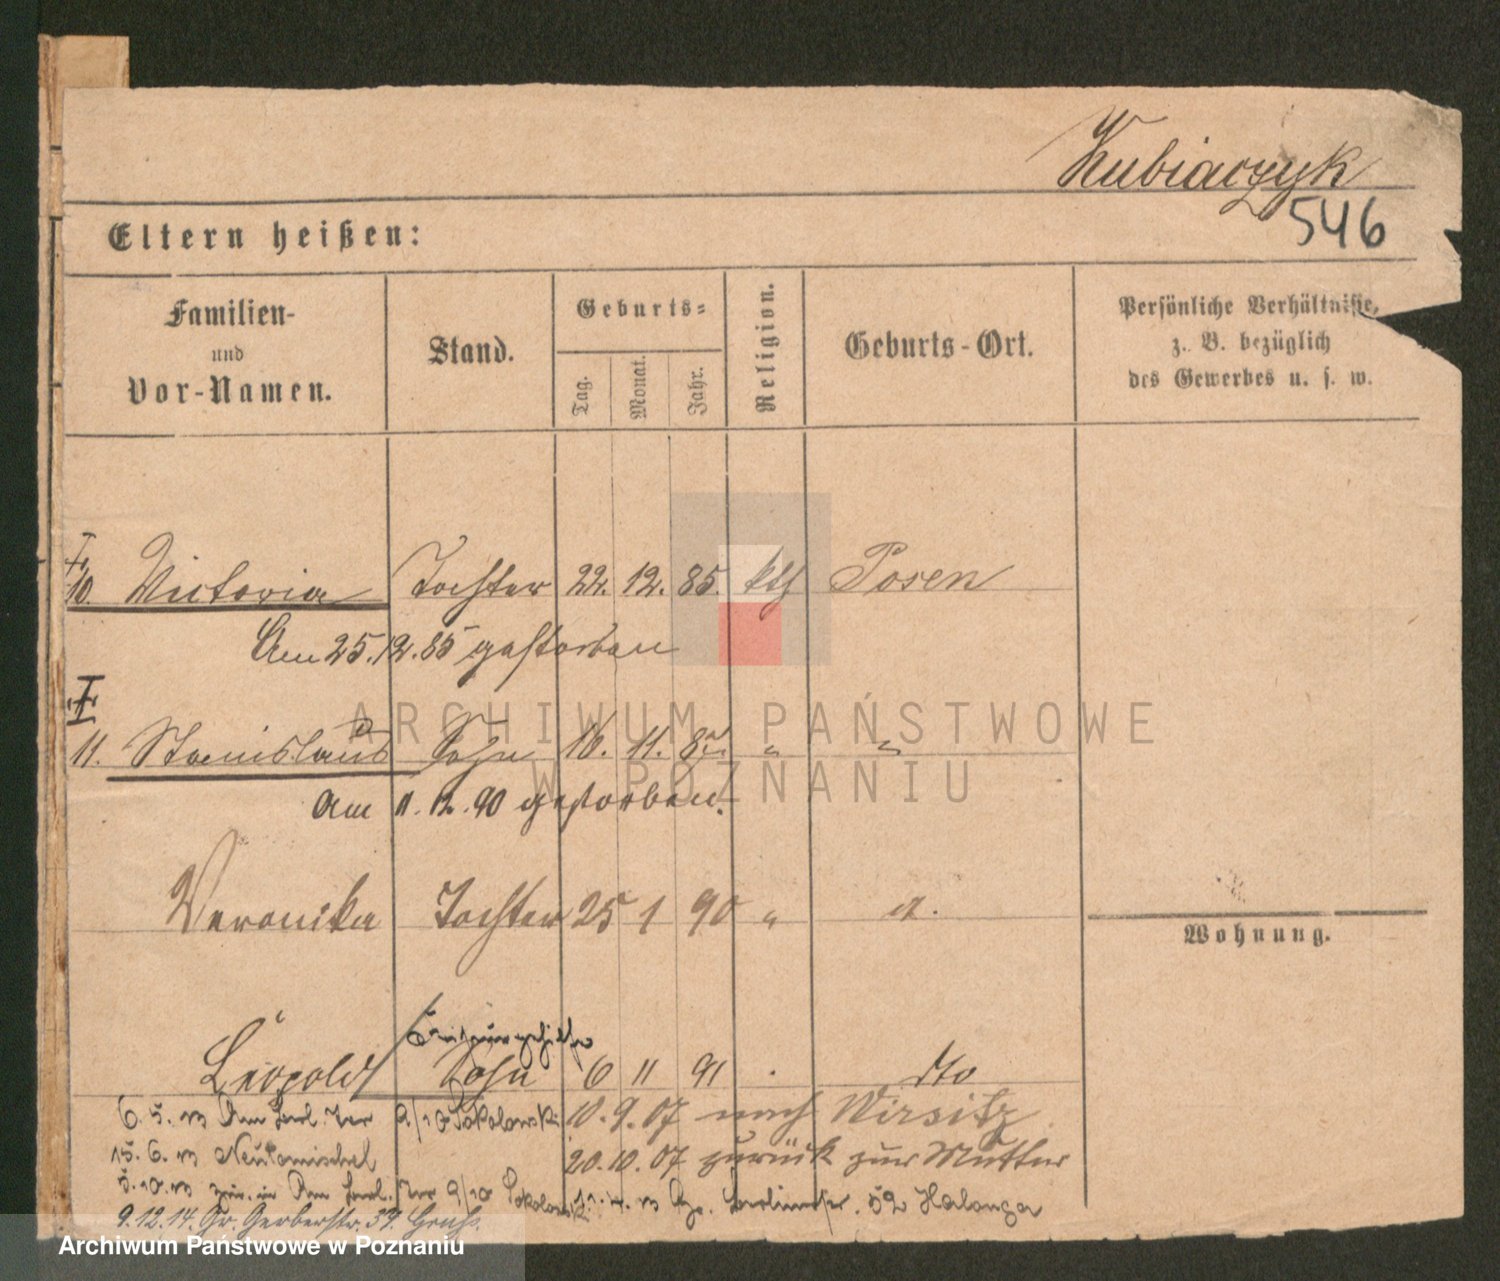 Kubiaczyk
546
Eltern heißen:
Familien-
und
Vor-Namen.
Stand.
Geburts-
Tag.
Monat.
Jahr.
Religion.
Geburts-Ort.
Persönliche Verhältnisse,
z. B. bezüglich
des Gewerbes u. s. w.
10. Victoria Tochter 22. 12. 85. kth Posen
Am 25.12.85 gestorben
11. Stanislaus Sohn 16. 11. 87 " "
Am 11.12.90 gestorben.
Veronika Tochter 25 1 90 " "
Wohnung.
Leopold Sohn 6 11 91 dto
6. 5. Am Berl. Tor 9/10 Sokolowski 10. 9. 07 nach Wirsitz
15. 6. Neutomischel 20. 10. 07 zurück zur Mutter
5.10. Am Berl. Tor 9/10 Sokolowski 11. 4. 52
9.12.14. Gr. Gerberstr. 39.
ARCHIWUM PAŃSTWOWE
W POZNANIU
Archiwum Państwowe w Poznaniu